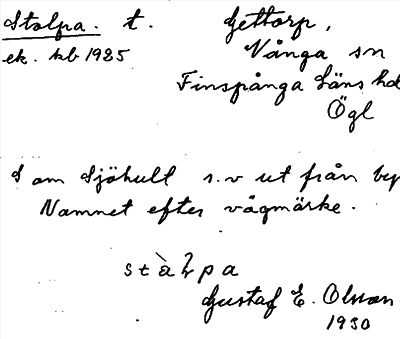 Stolpa. t. Gettorp,
ek. kb 1925 Vånga sn
Finspånga läns hd
Ögl
S om Sjöhult s.v ut från byn
Namnet efter vägmärke.
Gustaf E. Olsson
1930